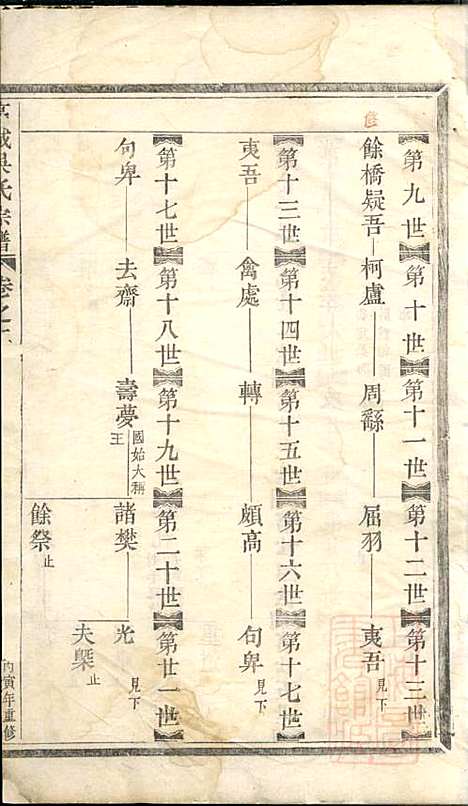 第九世 第十世 第十一世 第十二世 第十三世
餘橋疑吾 柯盧 周繇 屈羽 夷吾 見下
第十三世 第十四世 第十五世 第十六世 第十七世
夷吾 禽處 轉 頗高 句卑 見下
第十七世 第十八世 第十九世 第二十世 第廿一世
句卑 去齋 壽夢 國始大稱王 諸樊 光 見下
夫槩 止
餘祭 止
城吳氏宗譜 卷之
丙寅年重修